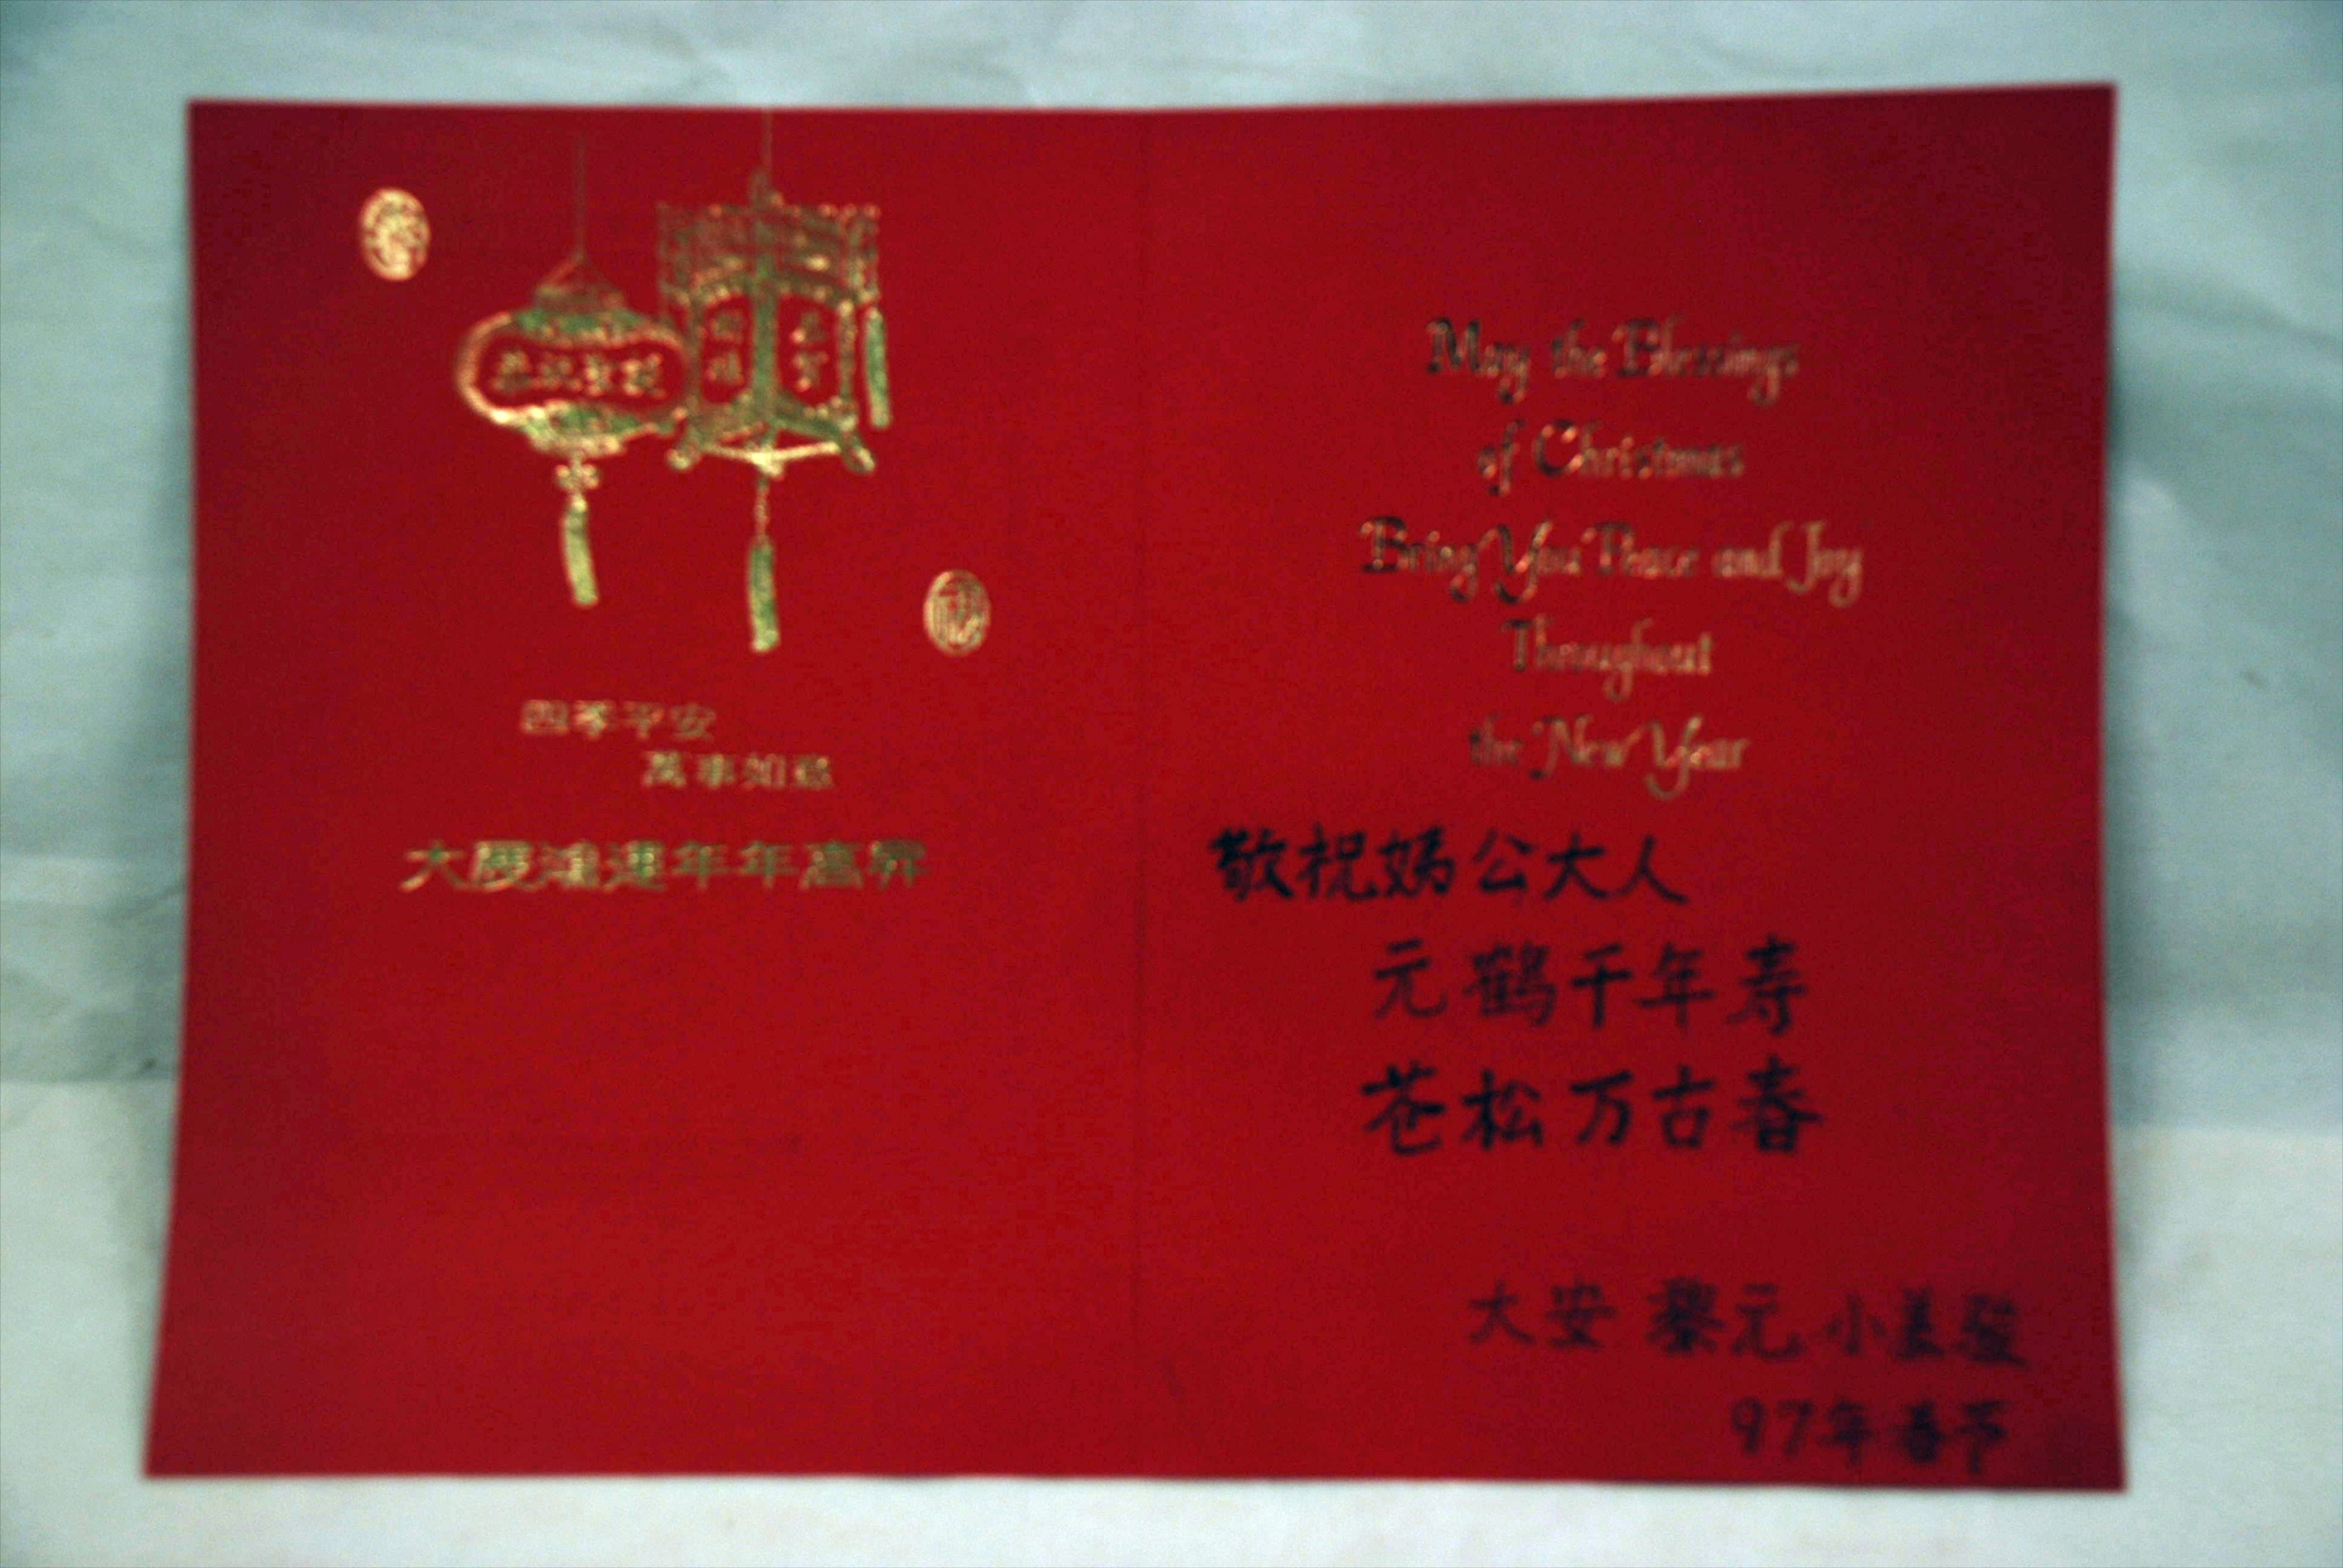 恭祝聖誕
恭賀
四季平安
萬事如意
大展鴻運年年高昇
May the Blessings
of Christmas
Bring You Peace and Joy
Throughout
the New Year
敬祝妈公大人
元鹤千年寿
苍松万古春
大安 黎元 小美
97年春节